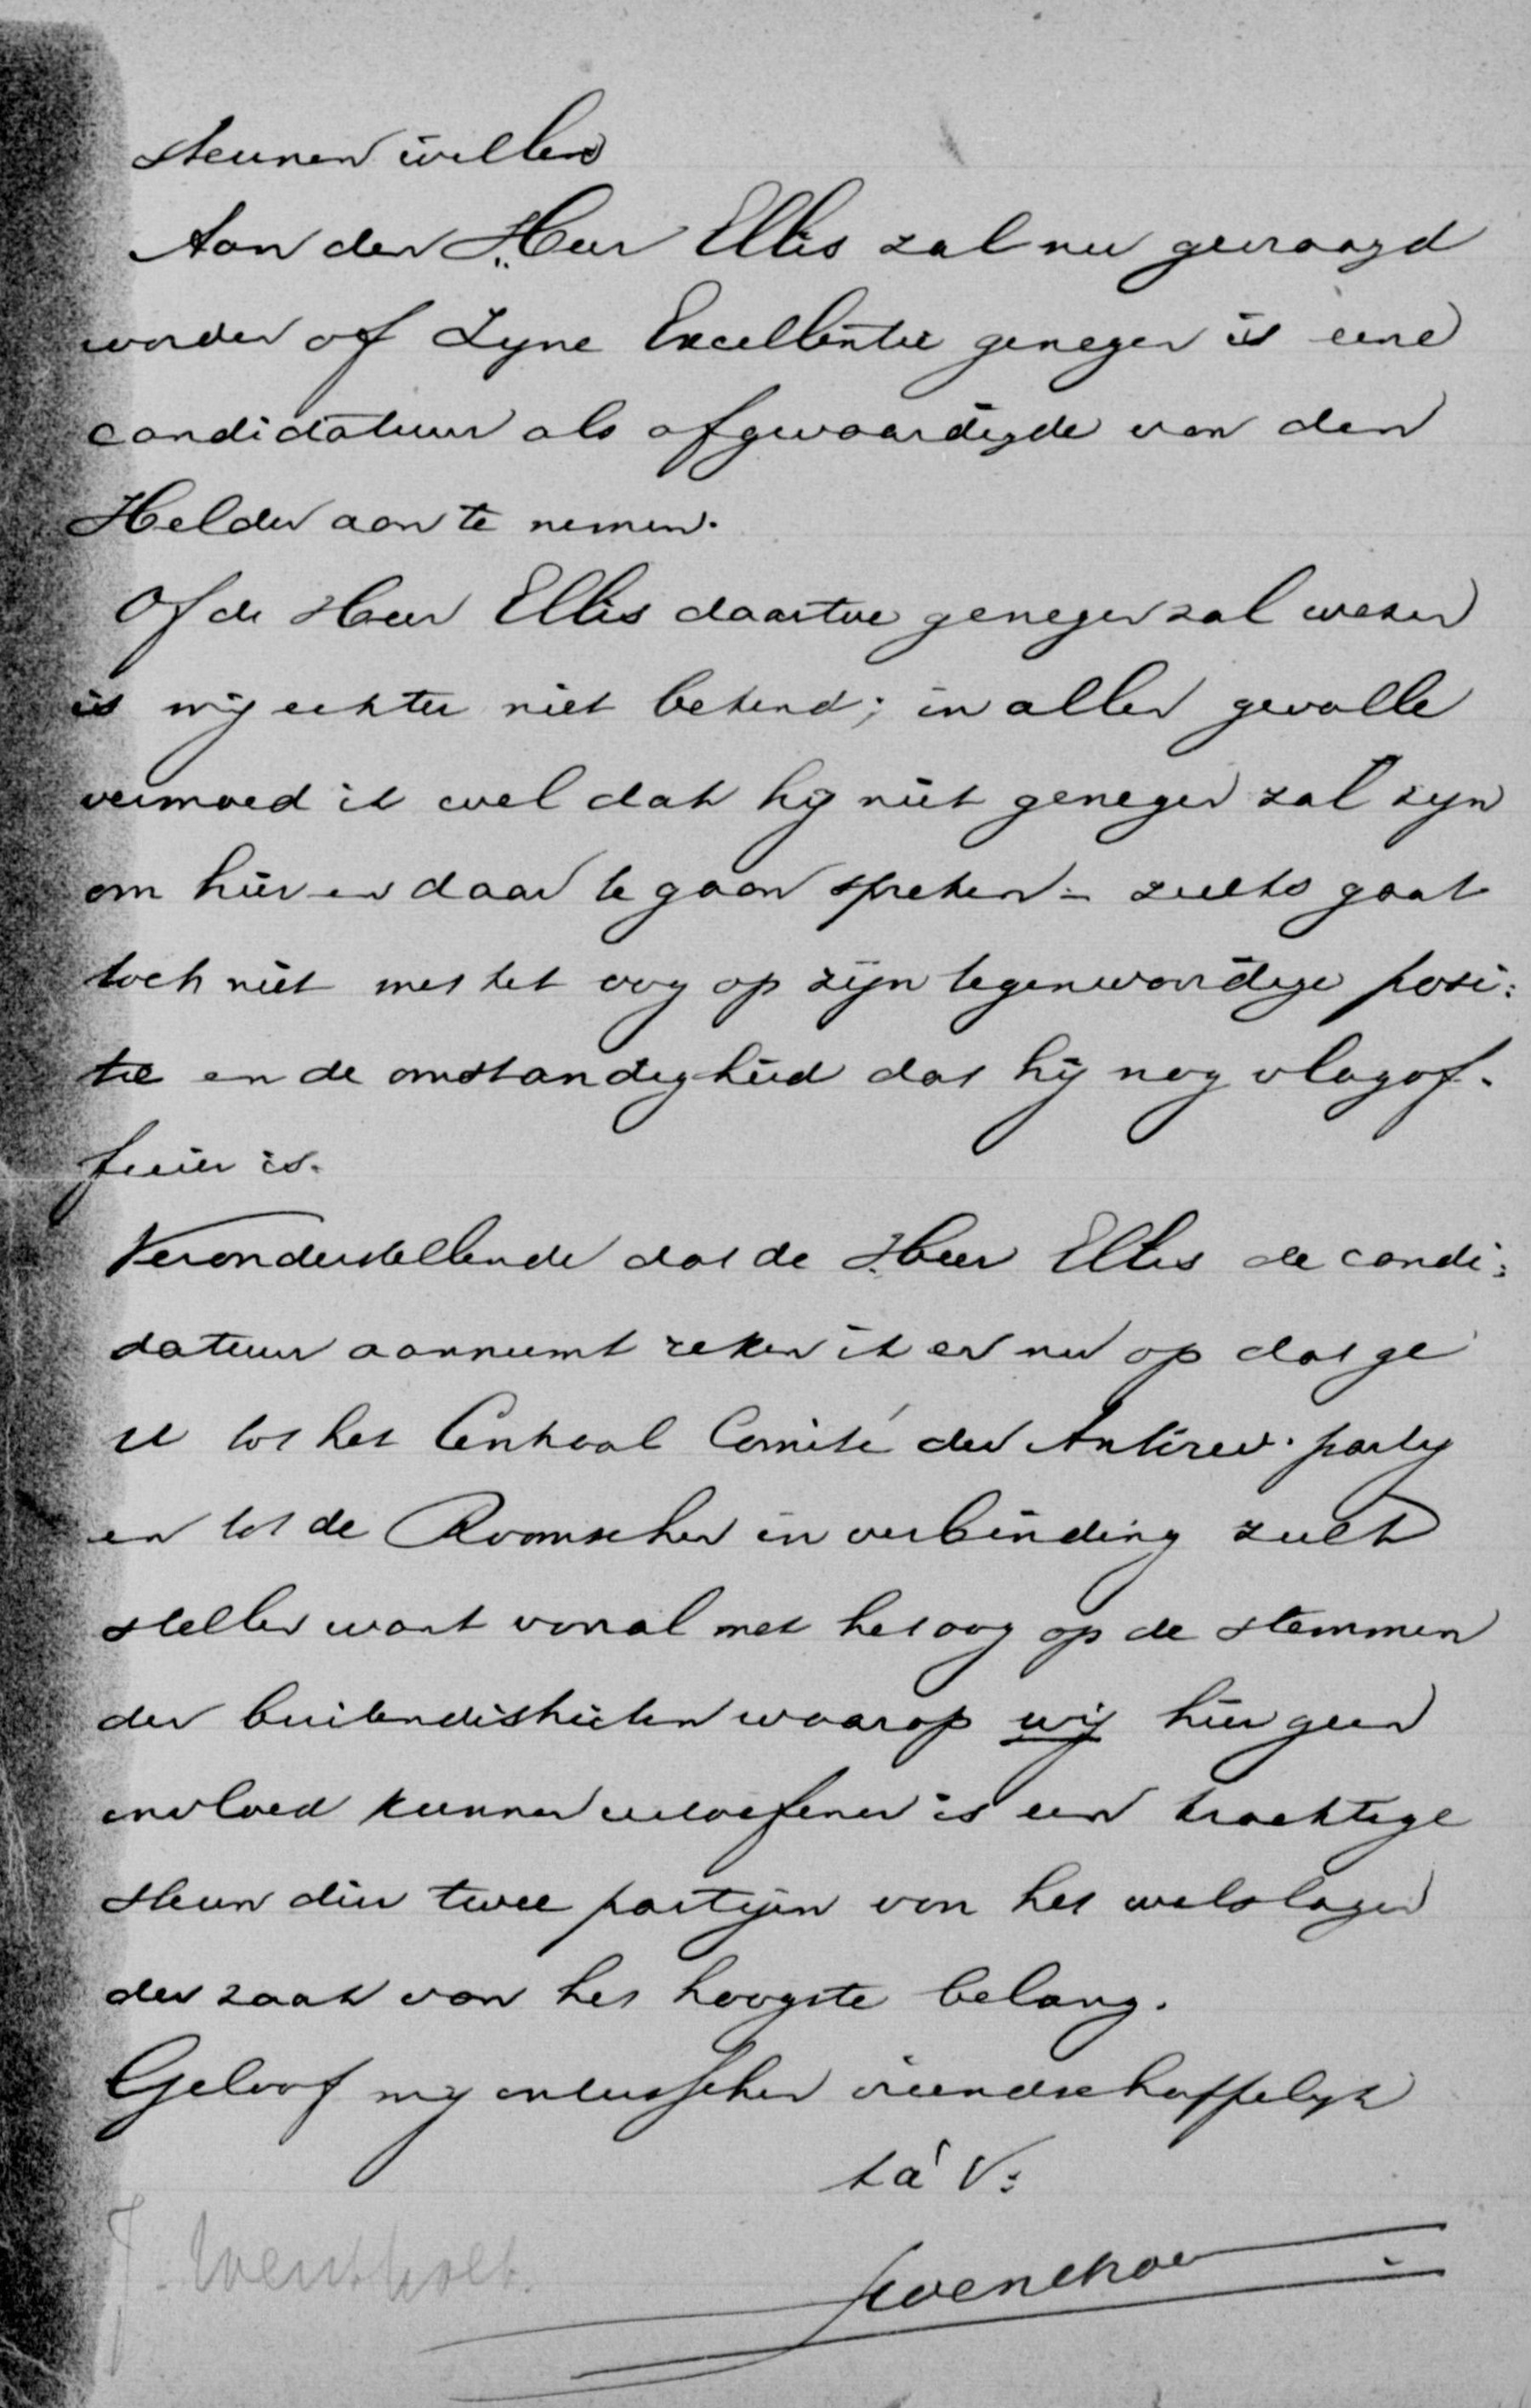 steunen willen
Aan den Heer Ellis zal nu gevraagd
worden of Zyne Excellentie genegen is eene
candidatuur als afgevaardigde van den
Helder aan te nemen.
Of de Heer Ellis daartoe genegen zal wezen
is mij echter niet bekend; in allen gevalle
vermoed ik wel dat hij niet genegen zal zijn
om hier en daar te gaan spreken - zulks gaat
toch niet met het oog op zijn tegenwoordige posi:
tie en de omstandigheid dat hij nog vlagof-
ficier is.
Veronderstellende dat de Heer Ellis de candi:
datuur aanneemt reken ik er nu op dat ge
U tot het Centraal Comité der Antirev. party
en tot de Roomschen in verbinding zult
stellen want vooral met het oog op de stemmen
der buitendistricten waarop wij hier geen
invloed kunnen uitoefenen is een krachtige
steun dier twee partijen van het welslagen
der zaak van het hoogste belang.
Geloof mij intusschen vriendschappelijk
t à V:
J. Wentholt.
JWentholt